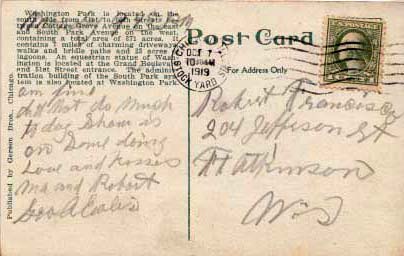 Washington Park is located on the
south side from 51st to 60th streets
Cottage Grove Avenue on the east
and South Park Avenue on the west,
containing a total area of 371 acres. It
contains 7 miles of charming driveways,
walks and bridle paths and 25 acres of
lagoons. An equestrian statue of Wash-
ington is located at the Grand Boulevard
and 51st Street entrance. The admin-
istration building of the South Park sys-
tem is also located at Washington Park.
am fine
do Not do Much
to day
on
Love and kisses
Ma and Robert
Published by Gerson Bros., Chicago.
Post Card
For Address Only
OCT 7
10 AM
1919
STOCK YARD STA
Robert Francisco
204 Jefferson St
Ft Atkinson
Wis